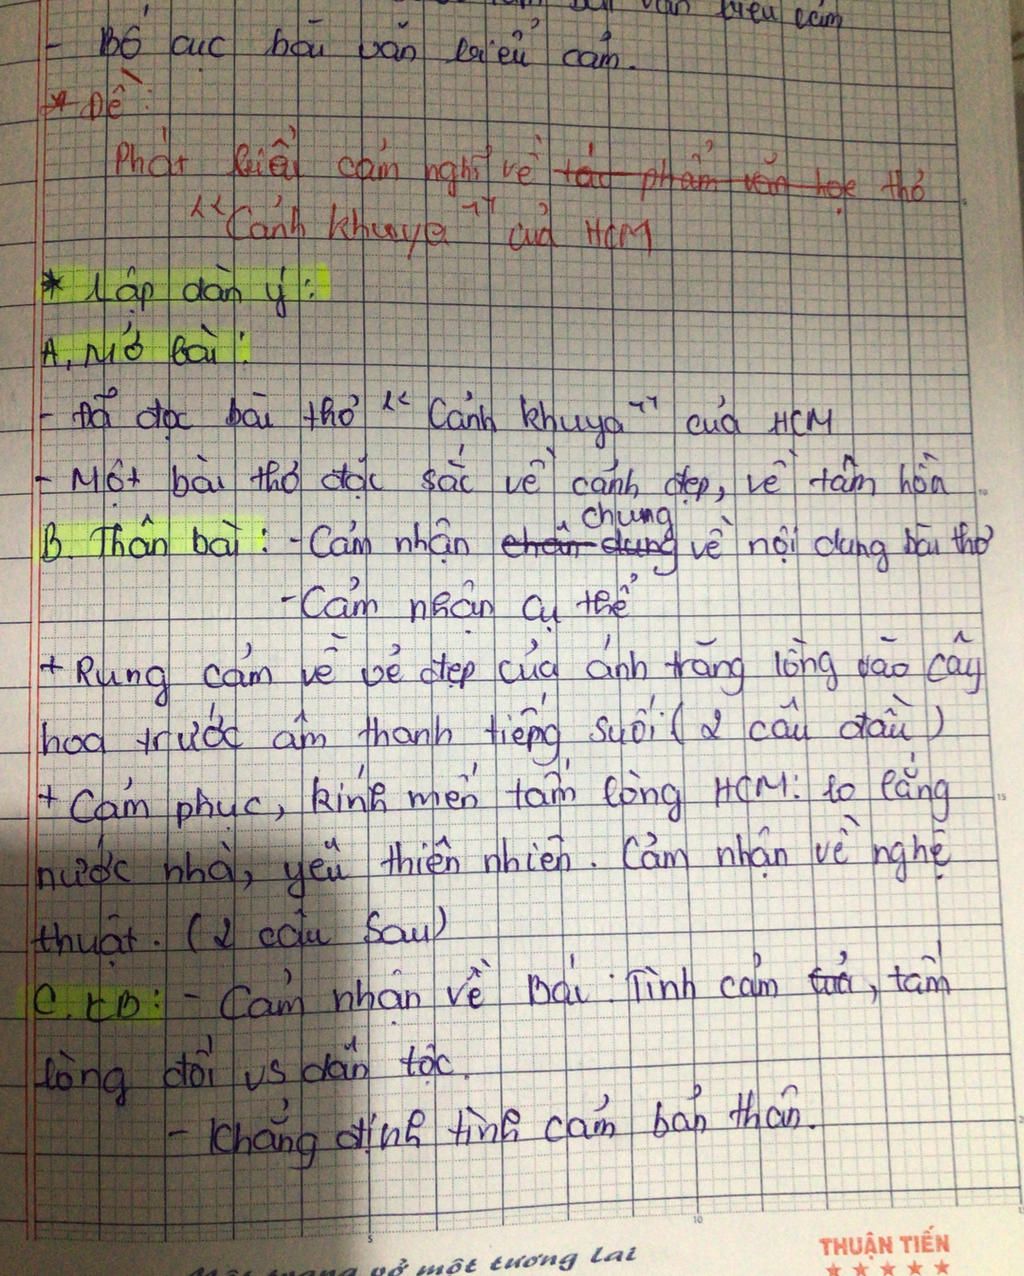 bài văn biểu cảm
- Bố cục bài văn biểu cảm.
* Đề:
Phát biểu cảm nghĩ về tác phẩm văn học thơ
"Cảnh khuya" của HCM
* Lập dàn ý:
A, Mở bài:
- Đã đọc bài thơ "Cảnh khuya" của HCM
- Một bài thơ đặc sắc về cảnh đẹp, về tâm hồn
chung
B. Thân bài: - Cảm nhận chân dung về nội dung bài thơ
- Cảm nhận cụ thể
+ Rung cảm về vẻ đẹp của ánh trăng lồng vào cây
hoa trước âm thanh tiếng suối (2 câu đầu)
+ Cảm phục, kính mến tấm lòng HCM: lo lắng
nước nhà, yêu thiên nhiên. Cảm nhận về nghệ
thuật. (2 câu sau)
C. KB: - Cảm nhận về Bác: Tình cảm của, tấm
lòng đối vs dân tộc.
- Khẳng định tình cảm bản thân.
vở một tương lai
THUẬN TIẾN